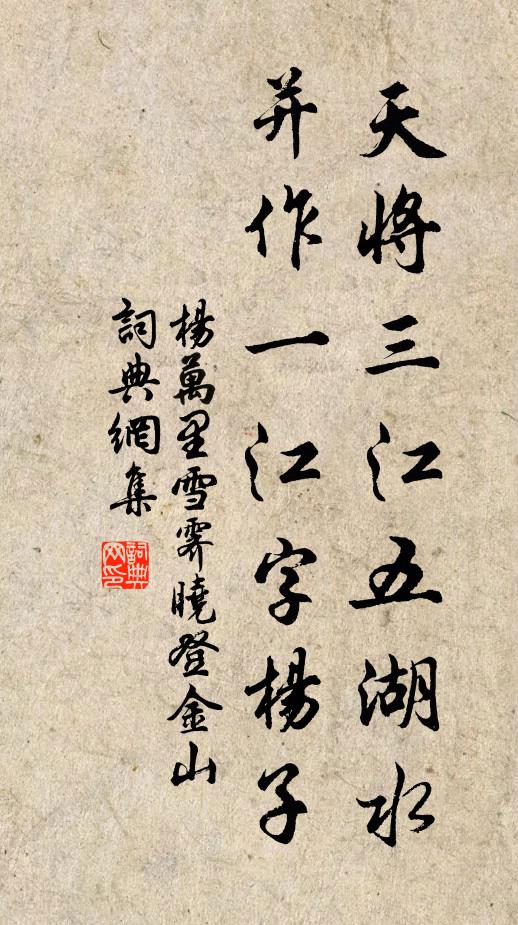 天將三江五湖水
并作一江字楊子
楊萬里雪霽曉登金山
詞典網集
詞典網印